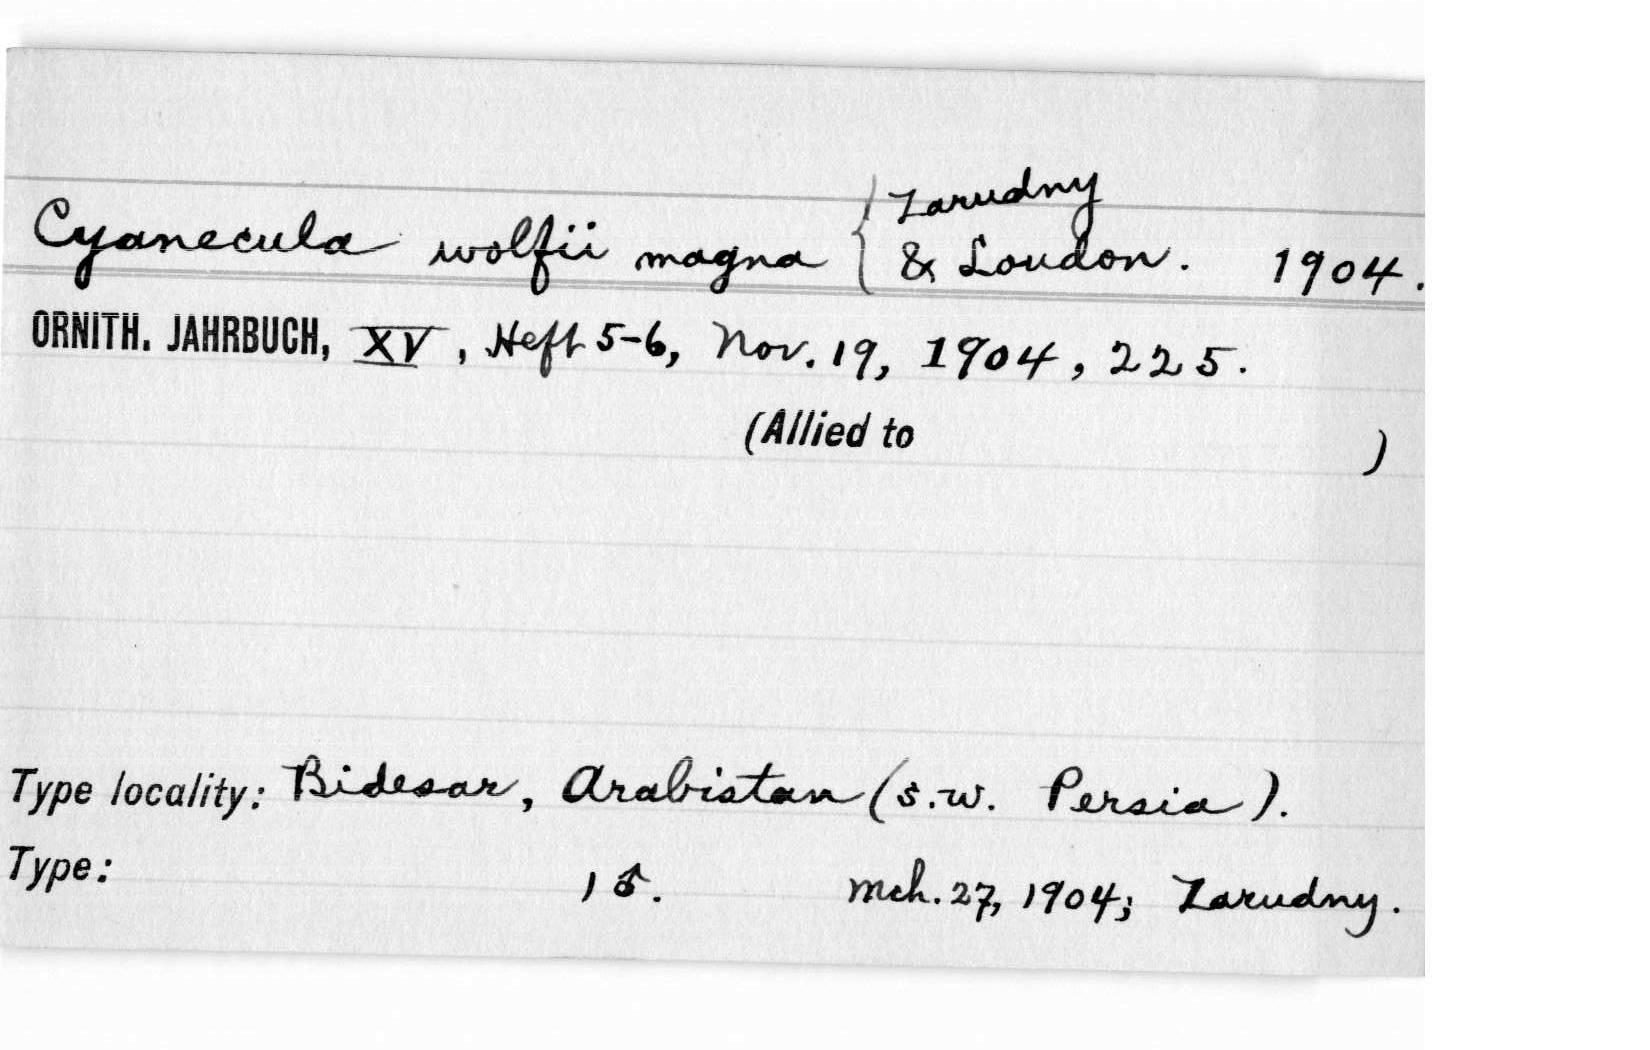 Cyanecula wolfii magna { Zarudny
& Loudon. 1904.
ORNITH. JAHRBUCH, XV, Heft 5-6, Nov. 19, 1904, 225.
(Allied to )
Type locality: Bidesar, Arabistan (s.w. Persia).
Type: 1 ♂. Mch. 27, 1904; Zarudny.